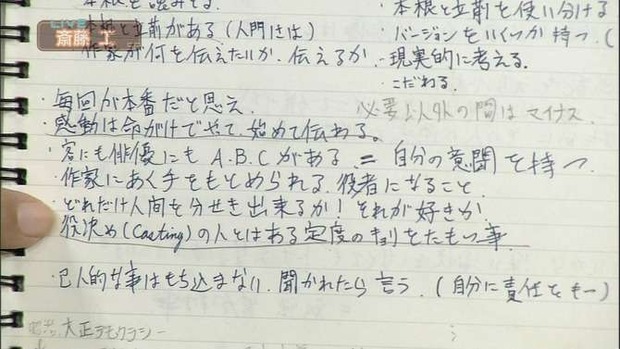 斎藤 工
本根と立前がある（人間には）
作家が何を伝えたいか. 伝えるか.
本根と立前を使い分ける
・バージョンをいくつか持つ.（
・現実的に考える.
・こだわる.
・毎回が本番だと思え.
必要以外の間はマイナス.
・感動は命がけでやって, 始めて伝わる。
・客にも俳優にも A.B.C がある = 自分の意聞を持つ.
・作家にあく手をもとめられる. 役者になること
・どれだけ人間を分せき出来るか! それが好きか
役決め(Casting)の人とはある定度のキョリをたもつ事.
・己人的な事はもち込まない. 聞かれたら言う.（自分に責任をもつ）
大正デモクラシー